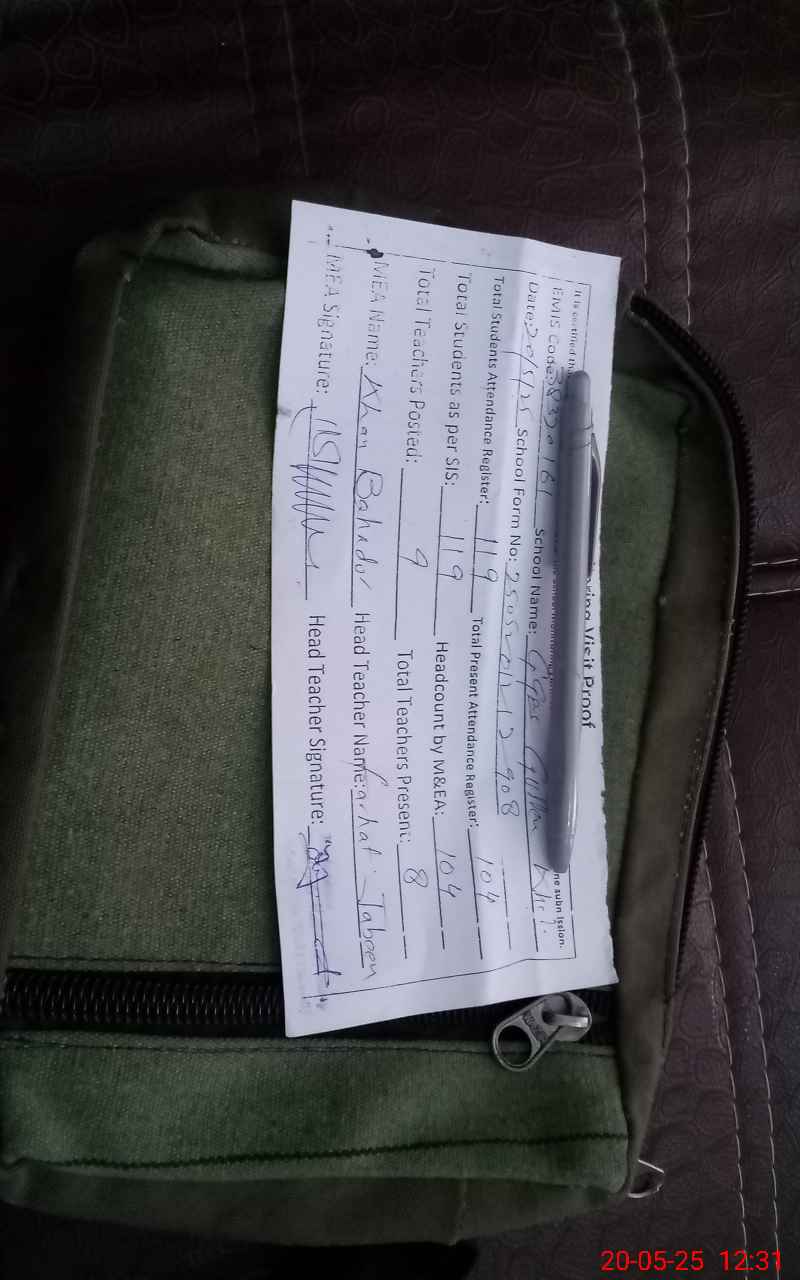 ring Visit Proof
It is certified th
EMIS Code: 38320161 School Name: GGPS
Date: 20/5/25 School Form No:
Total Students Attendance Register: 119 Total Present Attendance Register: 104
Total Students as per SIS: 119 Headcount by M&EA: 104
Total Teachers Posted: 9 Total Teachers Present: 8
MEA Name: Khan Bahadur Head Teacher Name: Farhat Jabeen
MEA Signature: Head Teacher Signature:
20-05-25 12:31